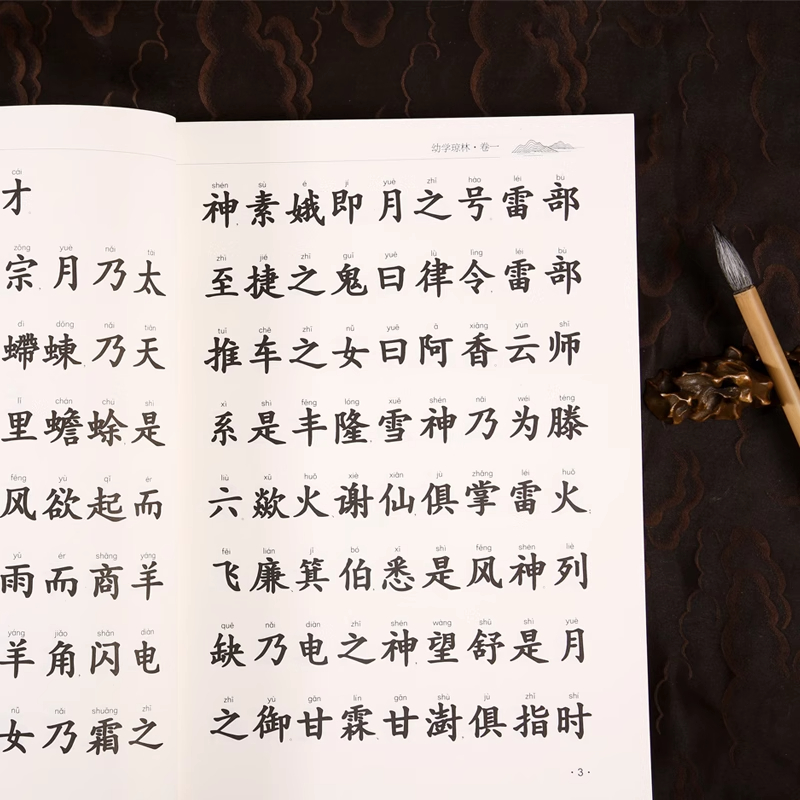 cái
才
zōng yuè nǎi tài
宗月乃太
dì dōng nǎi tiān
螮蝀乃天
lǐ chán chú shì
里蟾蜍是
fēng yù qǐ ér
风欲起而
yǔ ér shāng yáng
雨而商羊
yáng jiǎo shǎn diàn
羊角闪电
nǚ nǎi shuāng zhī
女乃霜之
幼学琼林·卷一
shén sù é jí yuè zhī hào léi bù
神素娥即月之号雷部
zhì jié zhī guǐ yuē lǜ lìng léi bù
至捷之鬼曰律令雷部
tuī chē zhī nǚ yuē ā xiāng yún shī
推车之女曰阿香云师
xì shì fēng lóng xuě shén nǎi wéi téng
系是丰隆雪神乃为滕
liù xū huǒ xiè xiān jù zhǎng léi huǒ
六欻火谢仙俱掌雷火;
fēi lián jī bó xī shì fēng shén liè
飞廉箕伯悉是风神列
quē nǎi diàn zhī shén wàng shū shì yuè
缺乃电之神望舒是月
zhī yù gān lín gān shù jù zhǐ shí
之御甘霖甘澍俱指时
·3·